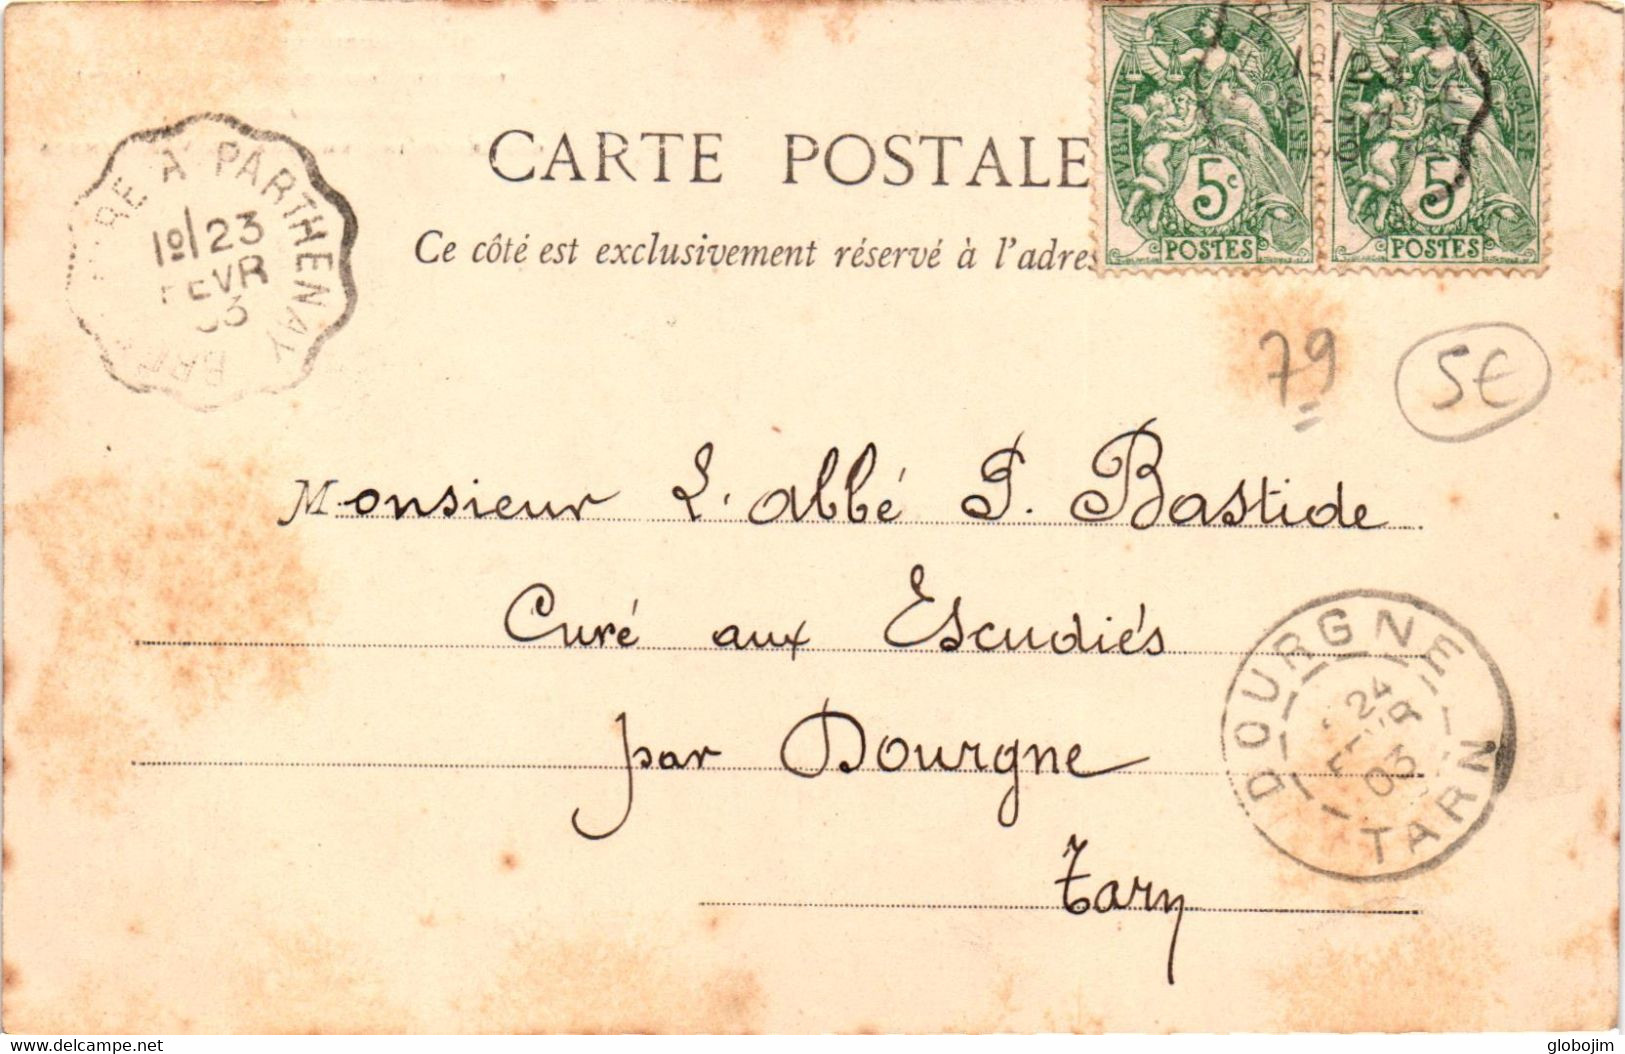 CARTE POSTALE
Ce côté est exclusivement réservé à l'adres
RE A PARTHENAY
1º/23
FEVR
03
5c
POSTES
5c
POSTES
FRANÇAISE
79
5€
Monsieur L'abbé P. Bastide
Curé aux Escudiés
par Dourgne
Tarn
DOURGNE
24
FEVR
03
TARN
delcampe.net
globojim